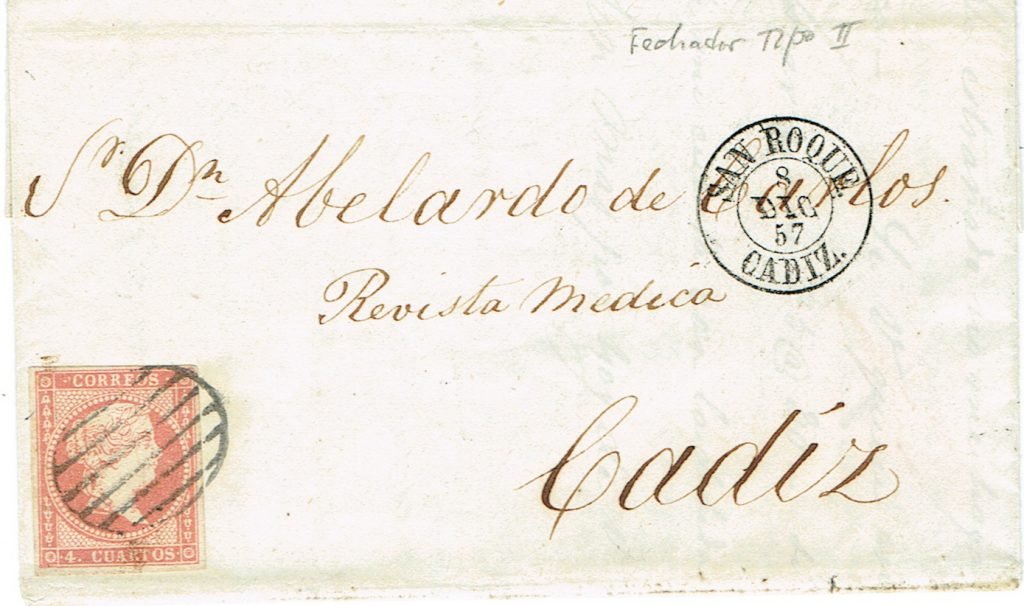 Fechador Tipo II
SAN ROQUE
8
DIC
57
CADIZ.
Sr. Dn. Abelardo de Carlos.
Revista Medica
Cadíz
CORREOS
4. CUARTOS